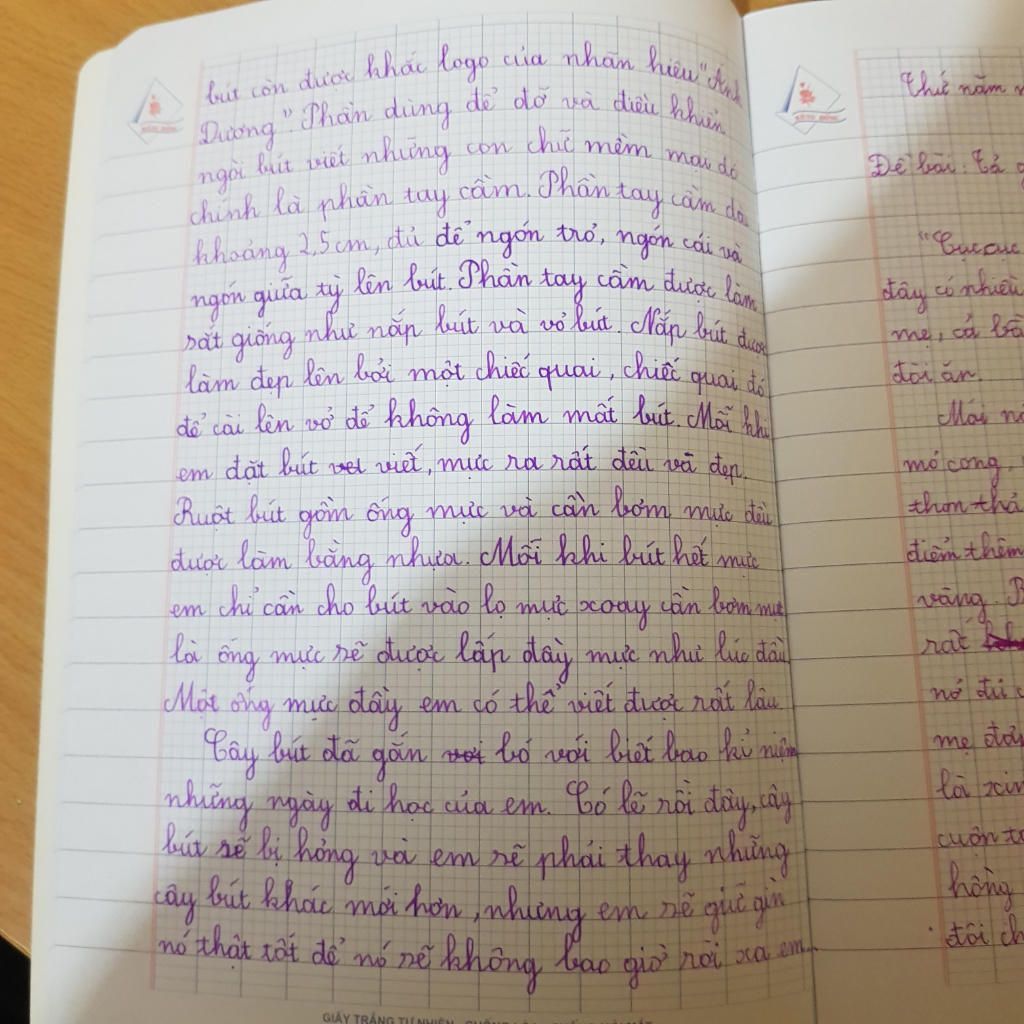 bút còn được khắc logo của nhãn hiệu "Ánh
Dương". Phần dùng để đỡ và điều khiển
ngòi bút viết những con chữ mềm mại đó
chính là phần tay cầm. Phần tay cầm dài
khoảng 2,5 cm, đủ để ngón trỏ, ngón cái và
ngón giữa tỳ lên bút. Phần tay cầm được làm
rất giống như nắp bút và vỏ bút. Nắp bút được
làm đẹp lên bởi một chiếc quai, chiếc quai đó
để cài lên vỏ để không làm mất bút. Mỗi khi
em đặt bút viết, mực ra rất đều và đẹp.
Ruột bút gồm ống mực và cần bơm mực đều
được làm bằng nhựa. Mỗi khi bút hết mực
em chỉ cần cho bút vào lọ mực xoay cần bơm mực
là ống mực sẽ được lấp đầy mực như lúc đầu.
Một ống mực đầy em có thể viết được rất lâu.
Cây bút đã gắn bó với biết bao kỉ niệm
những ngày đi học của em. Có lẽ rồi đây, cây
bút sẽ bị hỏng và em sẽ phải thay những
cây bút khác mới hơn, nhưng em sẽ giữ gìn
nó thật tốt để nó sẽ không bao giờ rời xa em.
GIẤY TRẮNG TỰ NHIÊN
Thứ năm
Đề bài: Tả
"Cục cục
đây có nhiều
mẹ, cả
đòi ăn.
mỏ cong,
điểm thêm
vàng.
rất
nó đi
mẹ
là
hồng